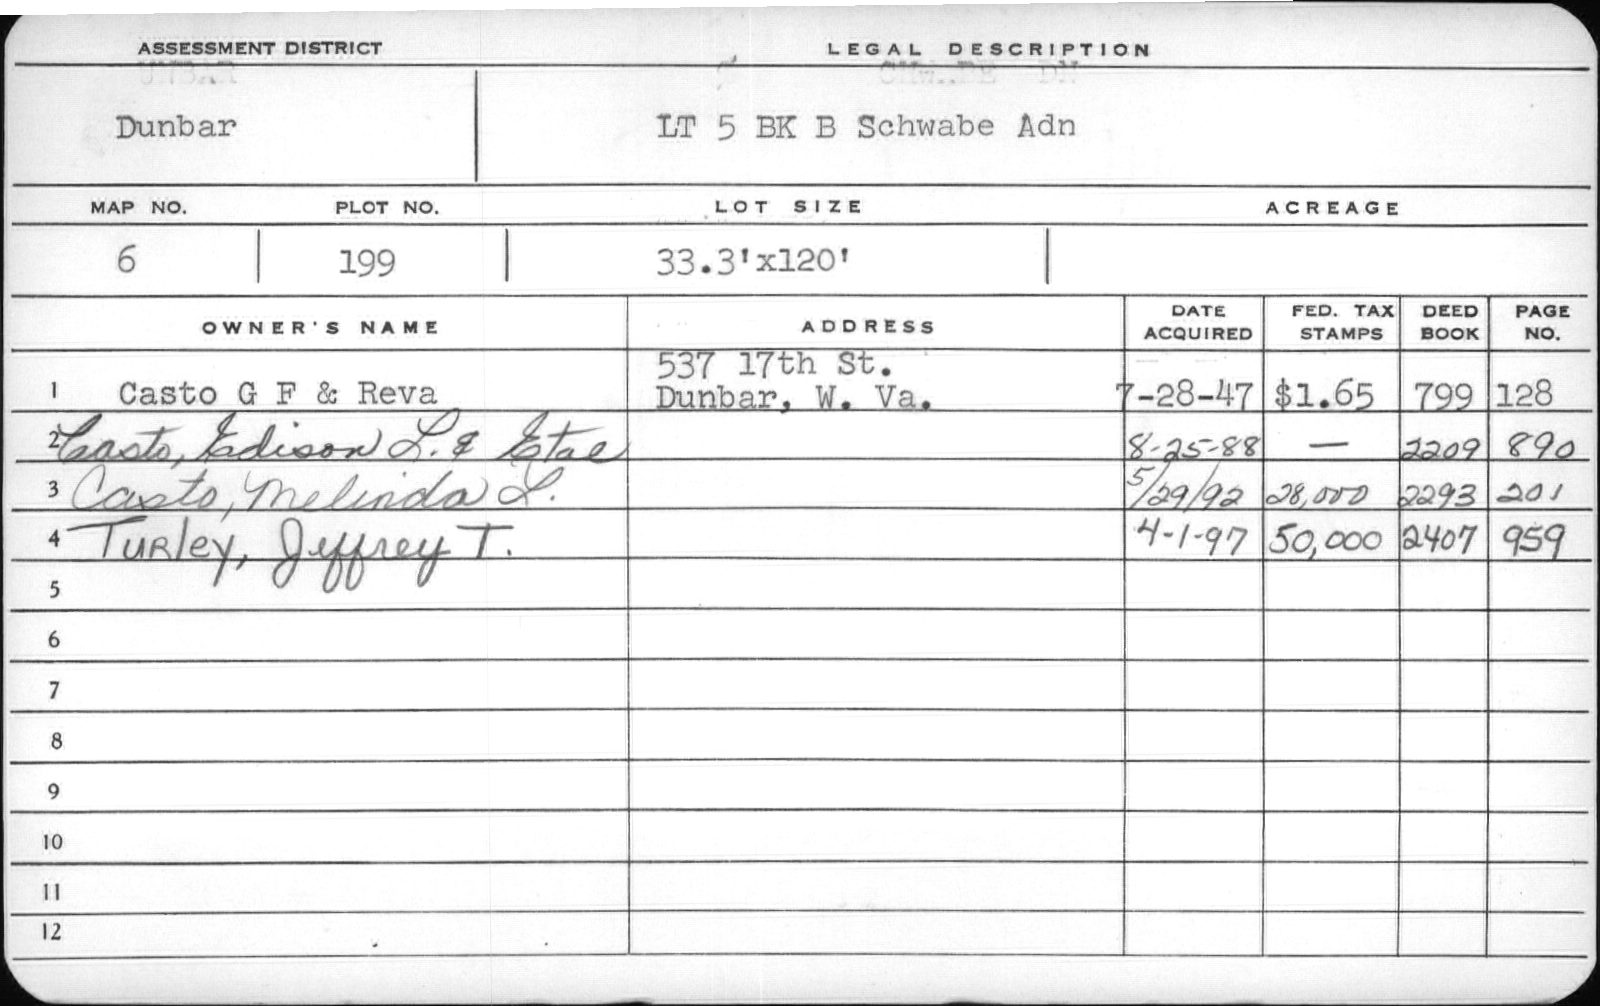 ASSESSMENT DISTRICT LEGAL DESCRIPTION
Dunbar LT 5 BK B Schwabe Adn
MAP NO. PLOT NO. LOT SIZE ACREAGE
6 199 33.3'x120'
OWNER'S NAME ADDRESS DATE ACQUIRED FED. TAX STAMPS DEED BOOK PAGE NO.
537 17th St.
1 Casto G F & Reva Dunbar, W. Va. 7-28-47 $1.65 799 128
2 Casto, Edison L. & Etal 8-25-88 — 2209 890
3 Casto, Melinda L. 5/29/92 28,000 2293 201
4 Turley, Jeffrey T. 4-1-97 50,000 2407 959
5
6
7
8
9
10
11
12